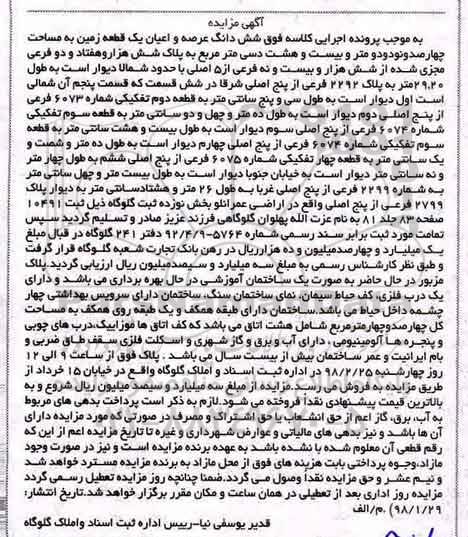 آگهی مزایده
به موجب پرونده اجرایی کلاسه فوق شش دانگ عرصه و اعیان یک قطعه زمین به مساحت
چهارصدونودودو متر و بیست و هشت دسی متر مربع به پلاک شش هزاروهفتاد و دو فرعی
مجزی شده از شش هزار و بیست و نه فرعی از۵ اصلی با حدود شمالا دیوار است به طول
۲۹،۲۰متر به پلاک ۲۲۹۲ فرعی از پنج اصلی شرقا در شش قسمت که قسمت پنجم آن شمالی
است اول دیوار است به طول سی و پنج سانتی متر به قطعه دوم تفکیکی شماره ۶۰۷۳ فرعی
از پنج اصلی دوم دیوار است به طول ده متر و چهل و دو سانتی متر به قطعه سوم تفکیکی
شماره ۶۰۷۴ فرعی از پنج اصلی سوم دیوار است به طول بیست و هشت سانتی متر به قطعه
سوم تفکیکی شماره ۶۰۷۴ فرعی از پنج اصلی چهارم دیوار است به طول ده متر و شصت و
یک سانتی متر به قطعه چهار تفکیکی شماره ۶۰۷۵ فرعی از پنج اصلی ششم به طول چهار متر
و نه سانتی متر دیوار است به خیابان جنوبا دیوار است به طول بیست متر و چهل سانتی متر
به شماره ۲۲۹۹ فرعی از پنج اصلی غربا به طول ۲۶ متر و هشتادسانتی متر به دیوار پلاک
۲۷۹۹ فرعی از پنج اصلی واقع در اراضی عمرانلو بخش نوزده ثبت گلوگاه ذیل ثبت ۱۰۴۹۱
صفحه ۸۳ جلد ۸۱ به نام عزت الله پهلوان گلوگاهی فرزند عزیز صادر و تسلیم گردید سپس
تمامت مورد ثبت برابر سند رسمی شماره ۵۷۶۴-۹۲/۴/۹ دفتر ۲۴۱ گلوگاه در قبال مبلغ
یک میلیارد و چهارصدمیلیون و ده هزارریال در رهن بانک تجارت شعبه گلوگاه قرار گرفت
و طبق نظر کارشناس رسمی به مبلغ سه میلیارد و سیصدمیلیون ریال ارزیابی گردید.پلاک
مزبور در حال حاضر به صورت یک ساختمان آموزشی در حال بهره برداری می باشد و دارای
یک درب فلزی، کف حیاط سیمان، نمای ساختمان سنگ، ساختمان دارای سرویس بهداشتی چهار
چشمه داخل حیاط می باشد.ساختمان دارای طبقه همکف و یک طبقه روی همکف به مساحت
کل چهارصدوچهارمترمربع شامل هشت اتاق می باشد که کف اتاق ها موزاییک،درب های چوبی
و پنجره ها آلومینیومی ، دارای آب و برق و گاز شهری و اسکلت فلزی سقف طاق ضربی و
بام ایرانیت و عمر ساختمان بیش از بیست سال می باشد . پلاک فوق از ساعت ۹ الی ۱۲
روز چهارشنبه ۹۸/۲/۲۵ در اداره ثبت اسناد و املاک گلوگاه واقع در خیابان ۱۵ خرداد از
طریق مزایده به فروش می رسد.مزایده از مبلغ سه میلیاردو سیصد میلیون ریال شروع و به
بالاترین قیمت پیشنهادی نقدا فروخته می شود.لازم به ذکر است پرداخت بدهی های مربوط
به آب، برق، گاز اعم از حق انشعاب یا حق اشتراک و مصرف در صورتی که مورد مزایده دارای
آن ها باشد و نیز بدهی های مالیاتی و عوارض شهرداری و غیره تا تاریخ مزایده اعم از این که
رقم قطعی آن معلوم شده یا نشده باشد به عهده برنده مزایده است و نیز در صورت وجود
مازاد،وجوه پرداختی بابت هزینه های فوق از محل مازاد به برنده مزایده مسترد خواهد شد
و نیم عشر و حق مزایده نقداً وصول می گردد.ضمنا چنانچه روز مزایده تعطیل رسمی گردد
مزایده روز اداری بعد از تعطیلی در همان ساعت و مکان مقرر برگزار خواهد شد.تاریخ انتشار:
۹۸/۱/۲۹) .م/الف
قدیر یوسفی نیا-رییس اداره ثبت اسناد واملاک گلوگاه